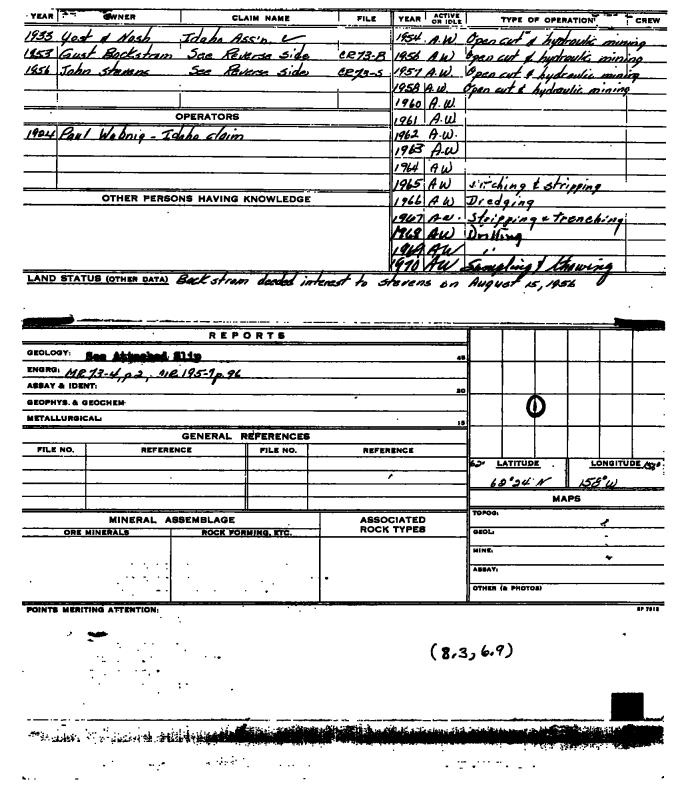 YEAR OWNER CLAIM NAME FILE YEAR ACTIVE OR IDLE TYPE OF OPERATION CREW
1933 Yost & Nash Idaho Ass'n. 1954 A.W. Open cut & hydraulic mining
1953 Gust Backstrom See Reverse Side CR73-B 1956 A.W) Open cut & hydraulic mining
1956 John Stevens See Reverse Side CR73-S 1957 A.W. Open cut & hydraulic mining
1958 A.W. Open cut & hydraulic mining
1960 A.W.
OPERATORS 1961 A.W.
1924 Paul Wabnig - Idaho claim 1962 A.W.
1963 A.W
1964 AW
1965 AW & stripping
OTHER PERSONS HAVING KNOWLEDGE 1966 AW Dredging
1967 A.W. Stripping & trenching
1968 AW Drilling
1969 AW "
1970 AW Sampling & thawing
LAND STATUS (OTHER DATA) Backstrom deeded interest to Stevens on August 15, 1956
REPORTS
GEOLOGY: See Attached Slip 45
ENGRG: MR 73-4, p2, MR 195-7 p.96
ASSAY & IDENT: 30
GEOPHYS. & GEOCHEM
METALLURGICAL: 15
GENERAL REFERENCES
FILE NO. REFERENCE FILE NO. REFERENCE
62° LATITUDE LONGITUDE 158°
62°24'N 158°W
MAPS
MINERAL ASSEMBLAGE ASSOCIATED ROCK TYPES TOPOG:
ORE MINERALS ROCK FORMING, ETC. GEOL:
MINE:
ASSAY:
OTHER (& PHOTOS)
POINTS MERITING ATTENTION:
(8.3, 6.9)